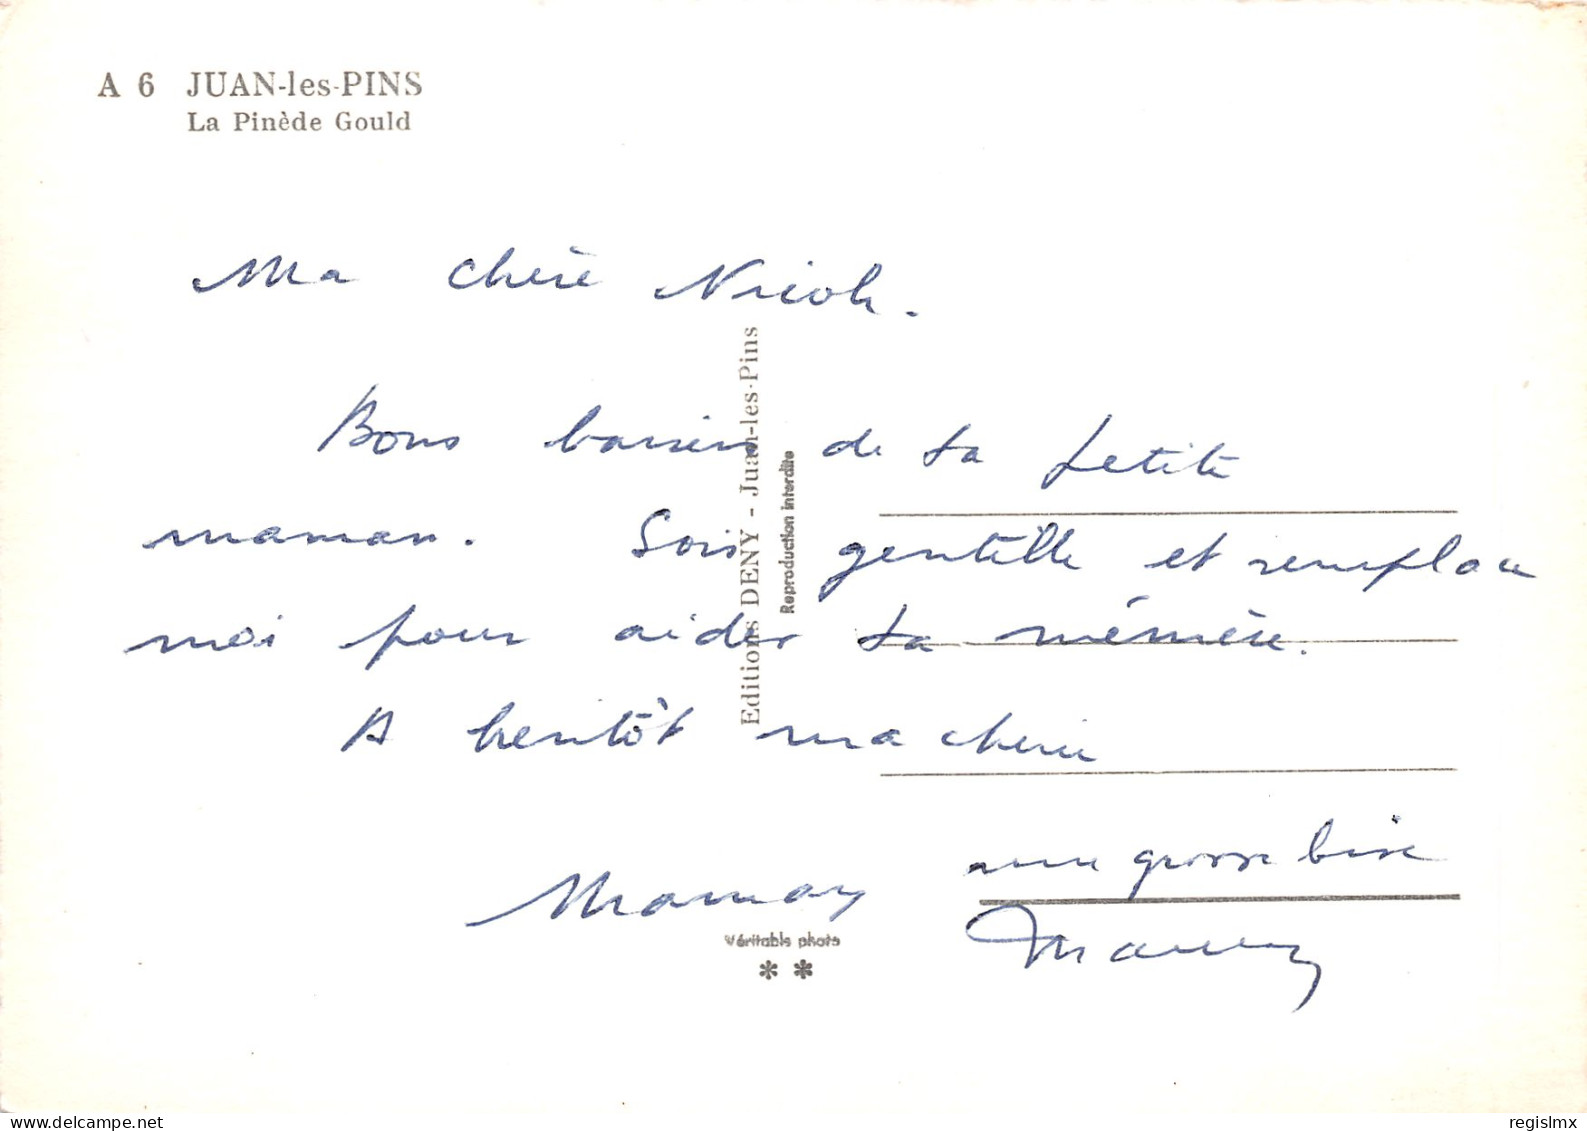 A 6 JUAN-les-PINS
La Pinède Gould
Ma chère Nicole.
Bons baisers de ta petite
maman. Sois gentille et remplace
moi pour aider ta mémère.
A bientôt ma cherie
Maman
une grosse bise
Editions DENY - Juan-les-Pins
Reproduction interdite
Véritable photo
delcampe.net
regislmx